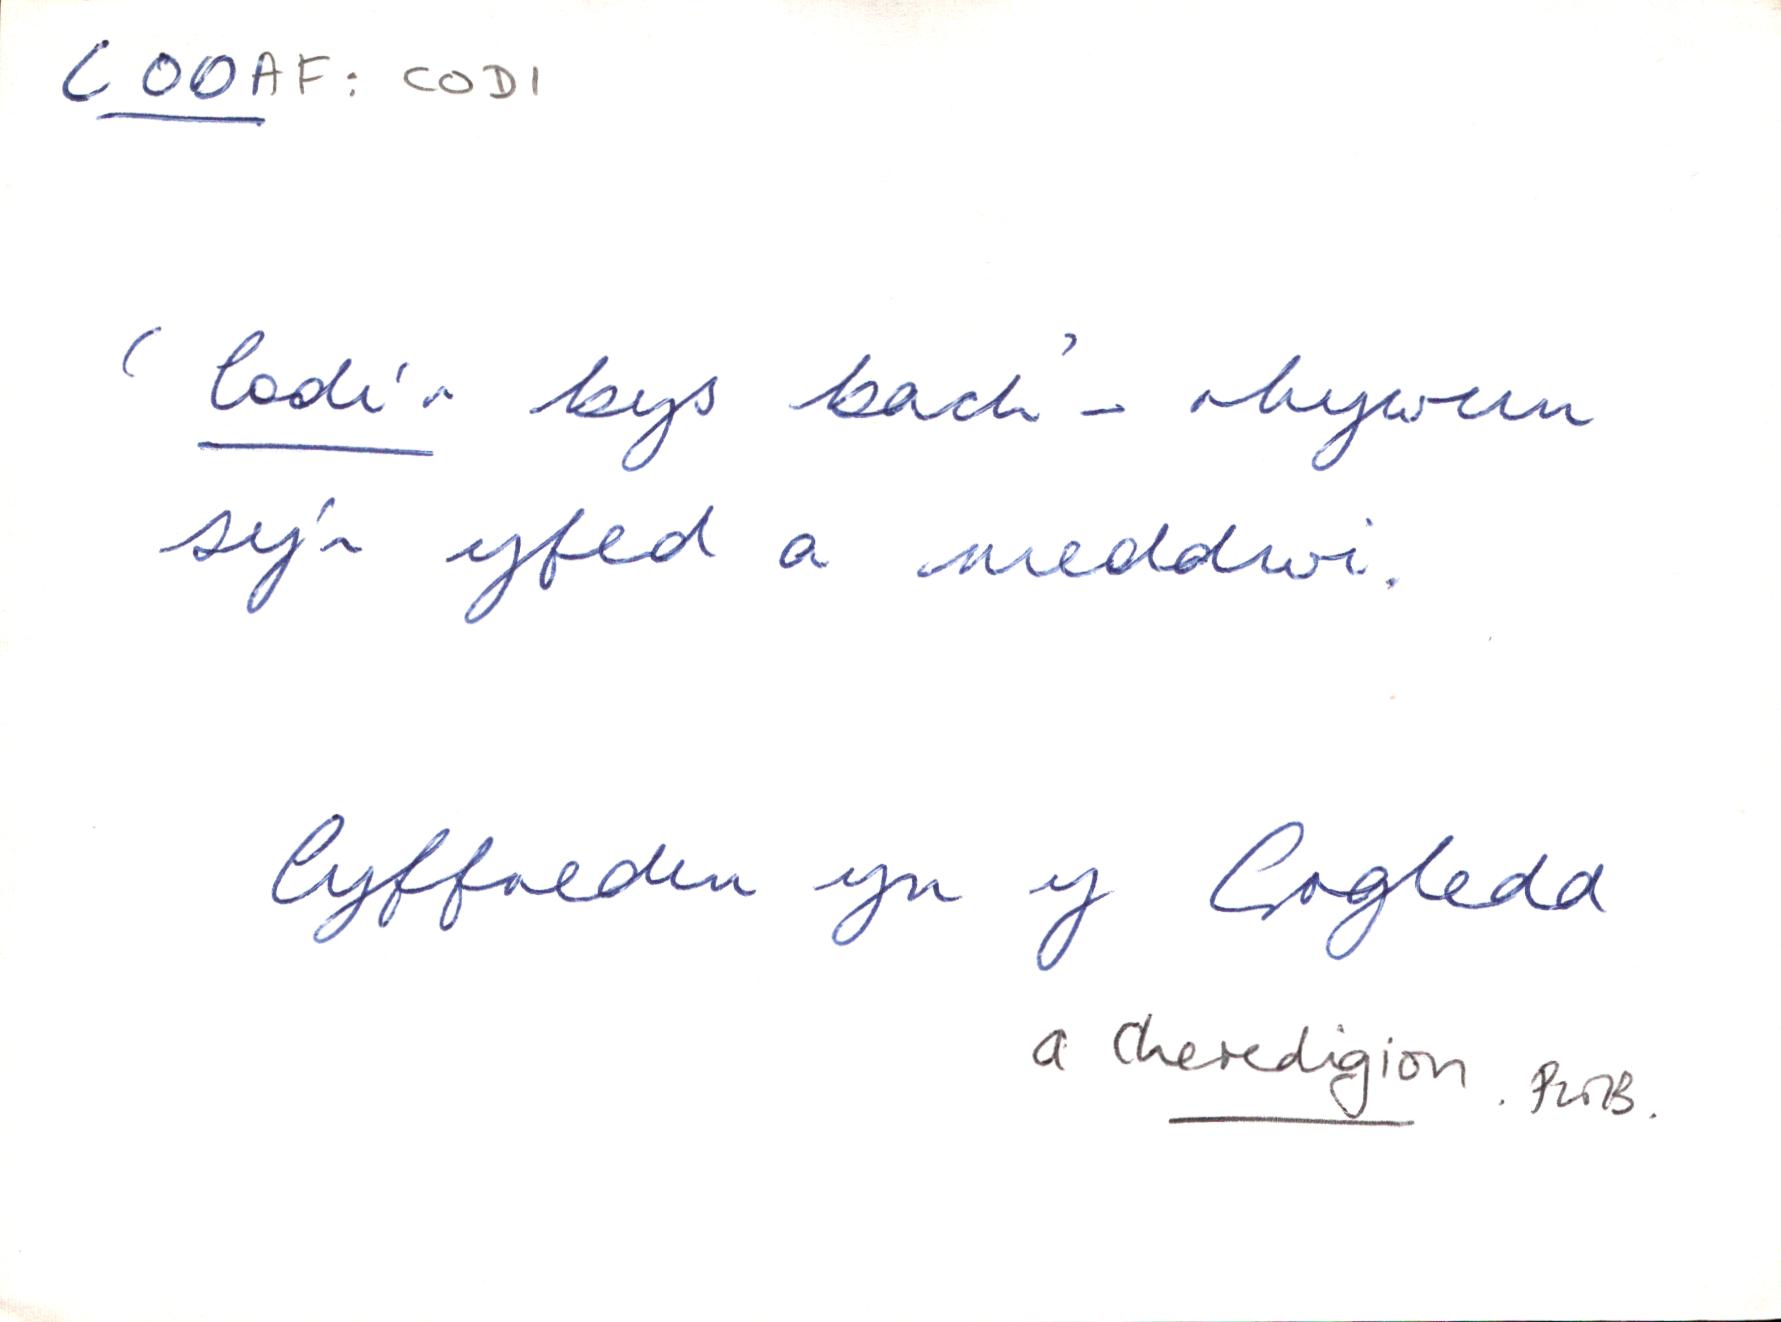 CODAF: CODI
'Codi'r bys bach' - rhywun
sy'n yfed a meddwi.
Cyffredin yn y Gogledd
a Cheredigion.